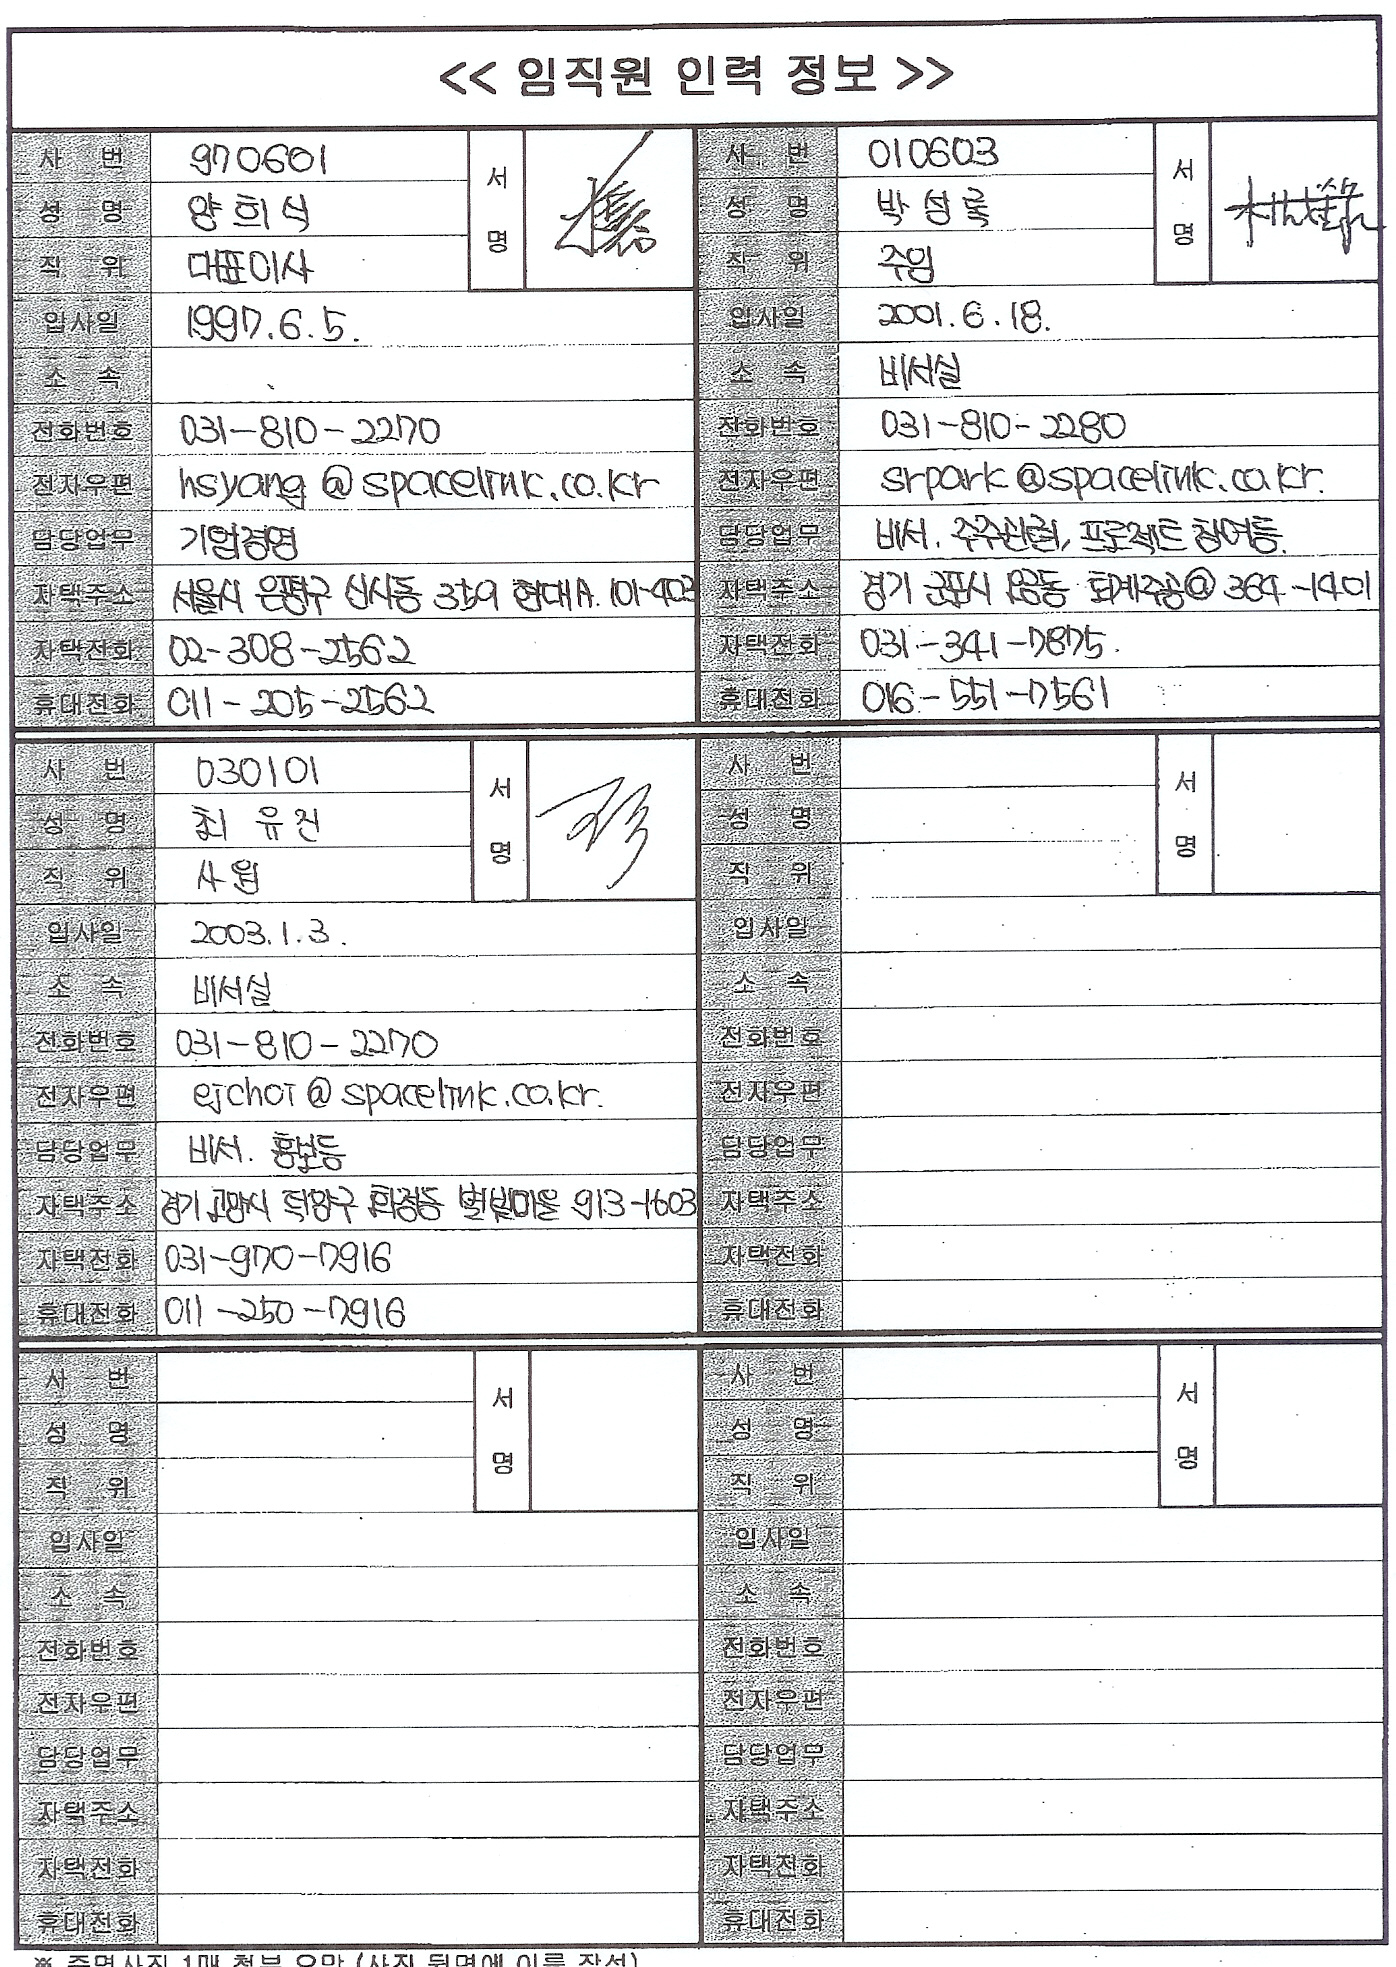 << 임직원 인력 정보 >>
사 번 970601
서명
성 명 양희식
직 위 대표이사
입사일 1997.6.5.
소 속
전화번호 031-810-2270
전자우편 hsyang@spacelink.co.kr
담당업무 기업경영
자택주소 서울시 은평구 신사동 359 현대A. 101-403
자택전화 02-308-2562
휴대전화 011-205-2562
사 번 010603
서명
성 명 박성록
직 위 주임
입사일 2001.6.18.
소 속 비서실
전화번호 031-810-2280
전자우편 srpark@spacelink.co.kr.
담당업무 비서. 주주관리, 프로젝트 참여등.
자택주소 경기 군포시 금동 퇴계주공@ 364-1401
자택전화 031-341-7875.
휴대전화 016-551-7561
사 번 030101
서명
성 명 최유진
직 위 사원
입사일 2003.1.3.
소 속 비서실
전화번호 031-810-2270
전자우편 ejchoi@spacelink.co.kr.
담당업무 비서. 홍보등
자택주소 경기 고양시 덕양구 화정동 별빛마을 913-1603
자택전화 031-970-7916
휴대전화 011-250-7916
사 번
서명
성 명
직 위
입사일
소 속
전화번호
전자우편
담당업무
자택주소
자택전화
휴대전화
사 번
서명
성 명
직 위
입사일
소 속
전화번호
전자우편
담당업무
자택주소
자택전화
휴대전화
사 번
서명
성 명
직 위
입사일
소 속
전화번호
전자우편
담당업무
자택주소
자택전화
휴대전화
※ 증명사진 1매 첨부 요망 (사진 뒷면에 이름 작성)